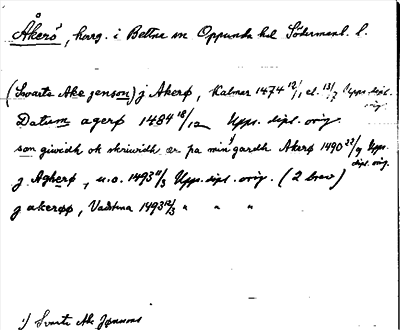 Åkerö, herrg. i Bettna sn Oppunda hd Södermanl. l.
(Svarte Ake jenson) j Akerø, Kalmar 1474 12/1, el. 13/7 Upps. dipl. orig.
Datum agerø 1484 18/12 Upps. dipl. orig.
som giwidh ok skriwidh ær pa min 1) gardh Akerø 1490 22/9 Upps. dipl. orig.
j Agherø, u.o. 1493 11/3 Upps. dipl. orig. (2 brev)
j akerøø, Vadstena 1493 12/3 " " "
1) Svarte Ake Jønssons